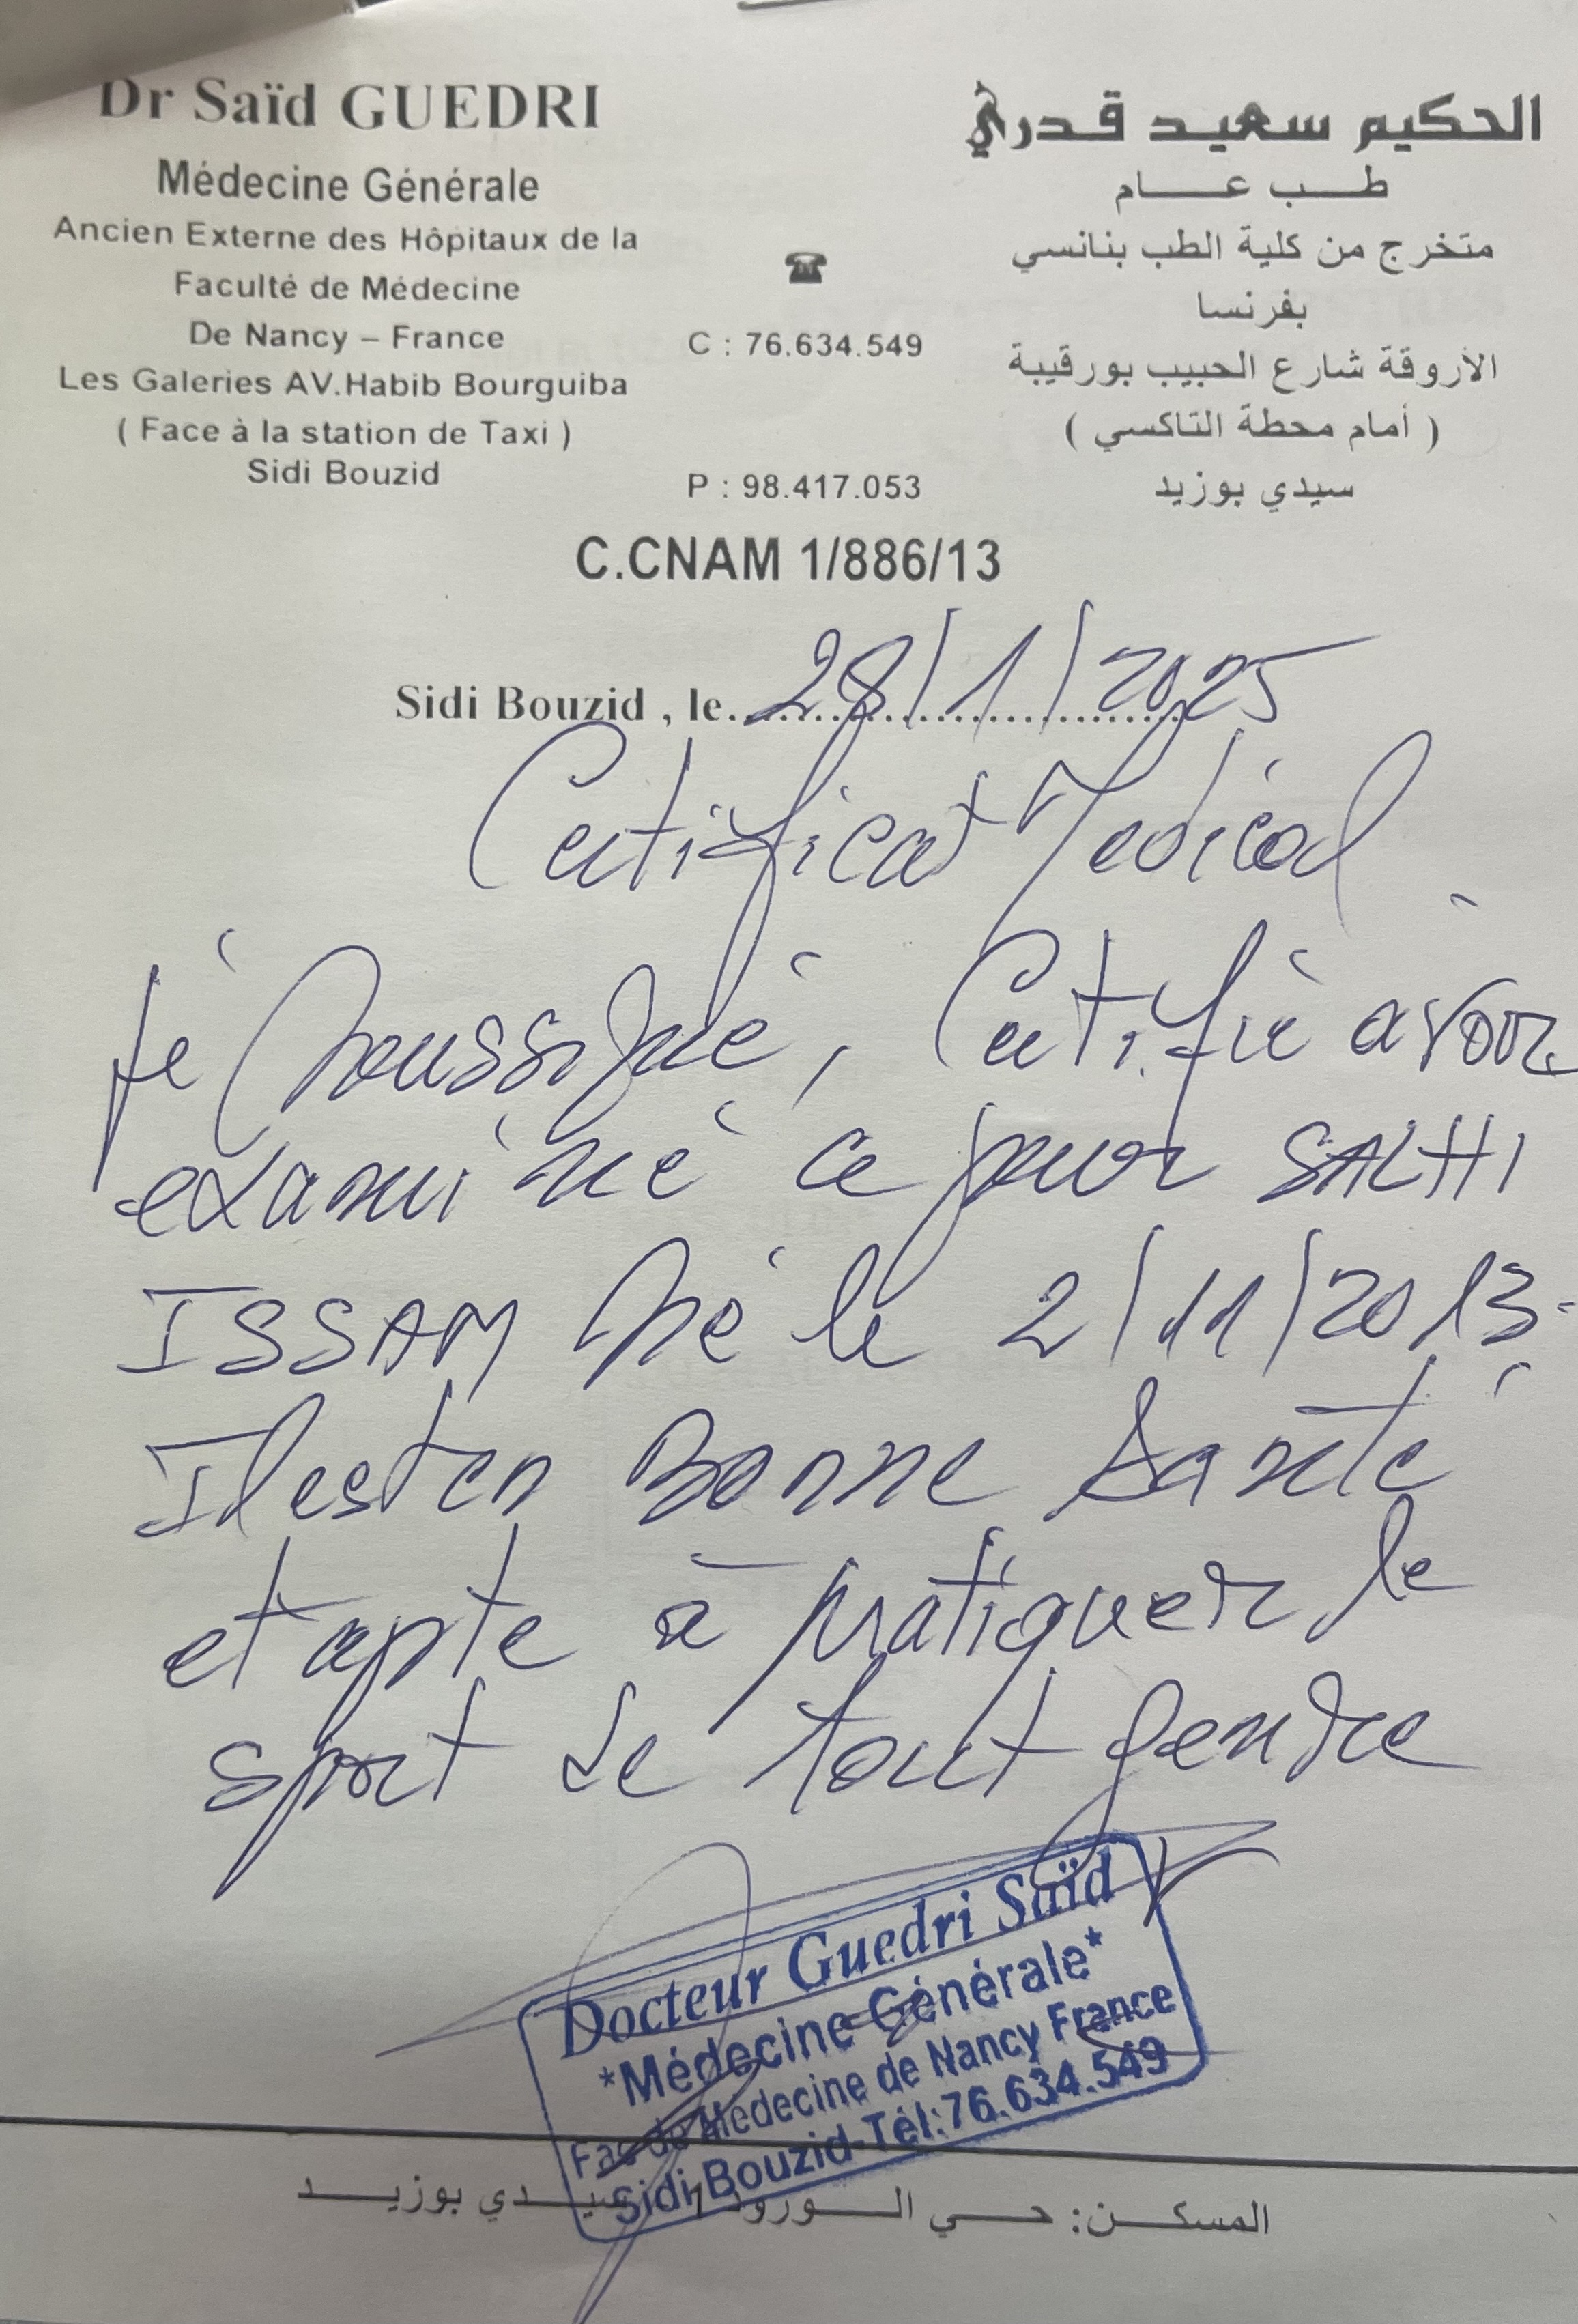 Dr Saïd GUEDRI
Médecine Générale
Ancien Externe des Hôpitaux de la
Faculté de Médecine
De Nancy – France
Les Galeries AV.Habib Bourguiba
( Face à la station de Taxi )
Sidi Bouzid
☎
C : 76.634.549
P : 98.417.053
الحكيم سعيد قدري
طب عام
متخرج من كلية الطب بنانسي
بفرنسا
الأروقة شارع الحبيب بورقيبة
( أمام محطة التاكسي )
سيدي بوزيد
C.CNAM 1/886/13
Sidi Bouzid , le 28/1/2025
Certificat Médical
Je soussigné, Certifie avoir
examiné ce jour SALHI
ISSAM né le 2/11/2013.
Il est en Bonne Santé
et apte à pratiquer le
sport de tout genre
Docteur Guedri Saïd
*Médecine Générale*
Fac de Médecine de Nancy France
Sidi Bouzid-Tél:76.634.549
المسكن: حي الورود 1 سيدي بوزيد